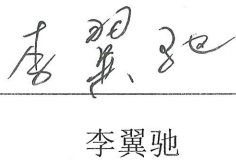 李翼驰
李翼驰